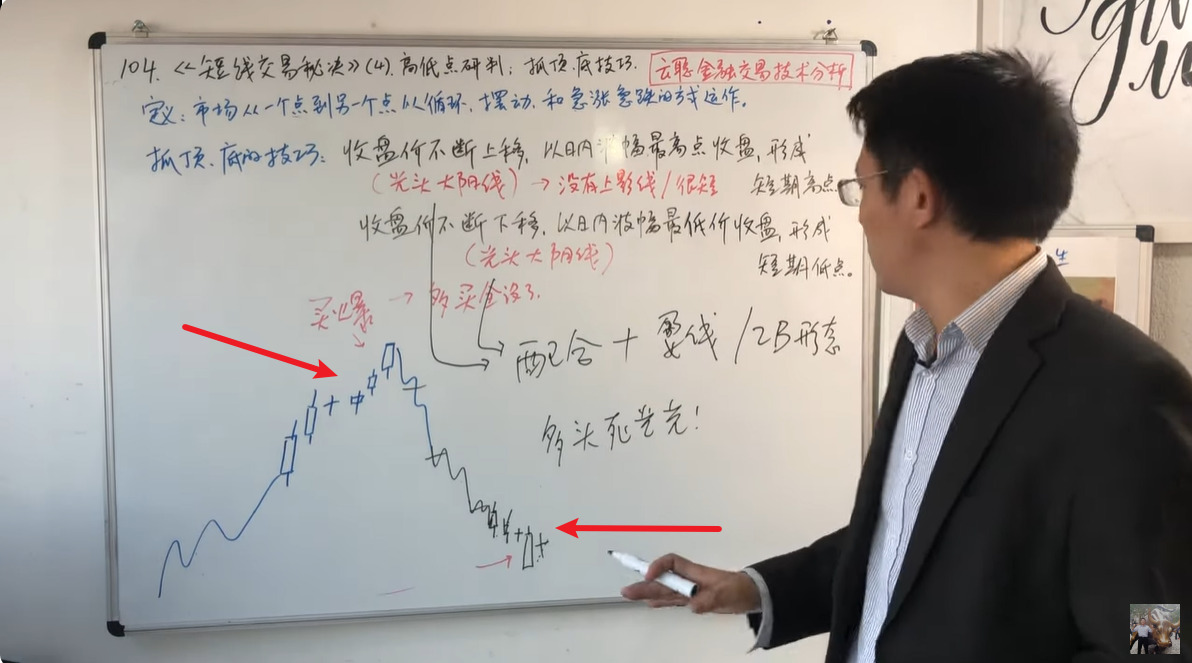 104.《短线交易秘决》(4).高低点研判：抓顶.底技巧.
云聪金融交易技术分析
定义：市场从一个点到另一个点以循环.摆动.和急涨急跌的方式运作。
抓顶.底的技巧：收盘价不断上移，以日内波幅最高点收盘，形成
(光头大阳线)→没有上影线/很短 短期高点.
收盘价不断下移，以日内波幅最低价收盘，形成
(光头大阴线) 短期低点。
买爆→多买全没了.
配合+ 线/2B形态
多头死光光！